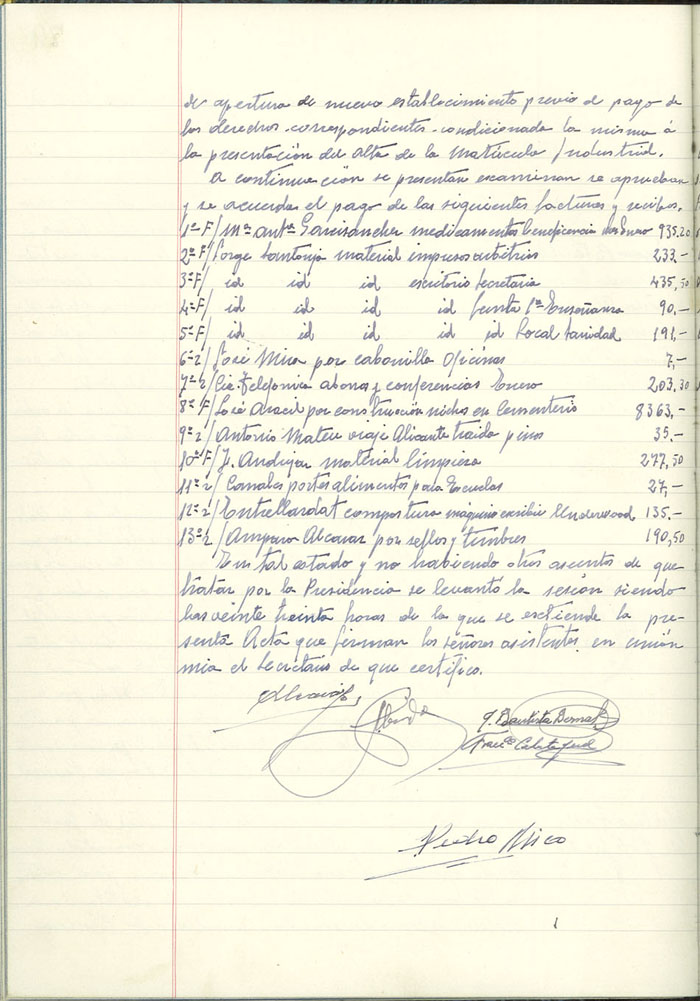 de apertura de nuevo establecimiento previo el pago de
los derechos correspondientes condicionada la misma á
la presentación del alta de la Matricula Industrial.
A continuación se presentan examinan se aprueban
y se acuerda el pago de las siguientes facturas y recibos.
1ª F/ Mª Antª Garcisanchez medicamentos beneficencia Enero 935.20
2ª F/ Jorge Santonja material impreso arbitrios 233.-
3ª F/ id id id escritorio Secretaria 435,50
4ª F/ id id id id Junta 1ª Enseñanza 90.-
5ª F/ id id id id id Local Sanidad 191.-
6ª r/ José Mira por carbonilla Oficinas 7,-
7ª r/ Cia. Telefonica abono y conferencias Enero 203.30
8ª F/ José Aracil por construcción nichos en Cementerio 8363,-
9ª r/ Antonio Mateu viaje Alicante traida pinos 35.-
10ª F/ J. Andujar material limpieza 277,50
11ª r/ Canales portes alimentos para Escuelas 27,-
12ª r/ Entrellardat compostura maquina escribir Underwood 135.-
13ª r/ Amparo Alcaraz por sellos y timbres 190,50
En tal estado y no habiendo otros asuntos de que
tratar por la Presidencia se levantó la sesión siendo
las veinte treinta horas de la que se extiende la pre-
sente Acta que firman los señores asistentes en unión
mia el Secretario de que certifico.
J. Bautista Bernab
Franco Calatayud
Pedro Mico